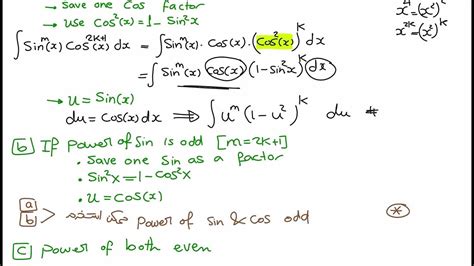 → Save one Cos factor
→ Use Cos²(x) = 1 - Sin²x
x⁴ = (x²)²
x²ᵏ = (x²)ᵏ
∫ Sinᵐ(x) Cos²ᵏ⁺¹(x) dx = ∫ Sinᵐ(x). Cos(x). (Cos²(x))ᵏ dx
= ∫ Sinᵐ(x) Cos(x) (1 - Sin²x)ᵏ dx
→ u = Sin(x)
du = Cos(x) dx ⟹ ∫ uᵐ (1 - u²)ᵏ du *
b If power of Sin is odd [m = 2k+1]
• Save one Sin as a factor
• Sin²x = 1 - Cos²x
• u = Cos(x)
a
b > power of sin & cos odd *
c power of both even